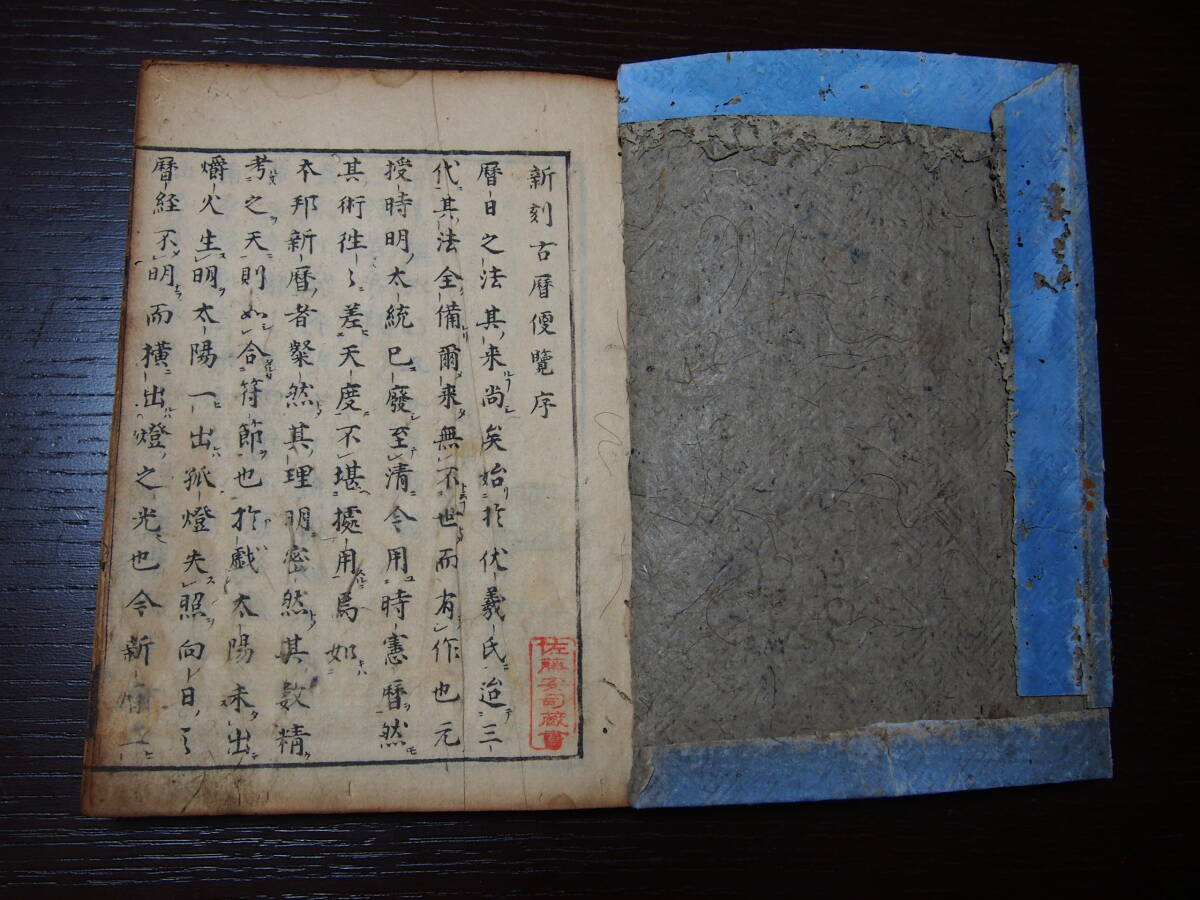 新刻古暦便覽序
暦日之法其来尚矣始於伏羲氏迨三
代其法全備爾来無不世而有作也元
授時明太統已廢至清今用時憲暦然
其術徃〻差天度不堪據用焉如
本邦新暦者粲然其理明密然其数精
考之天則如合符節也於戯太陽未出
爝火生明太陽一出孤燈失照向日之
暦経不明而横出燈之光也今新
佐藤
司蔵書